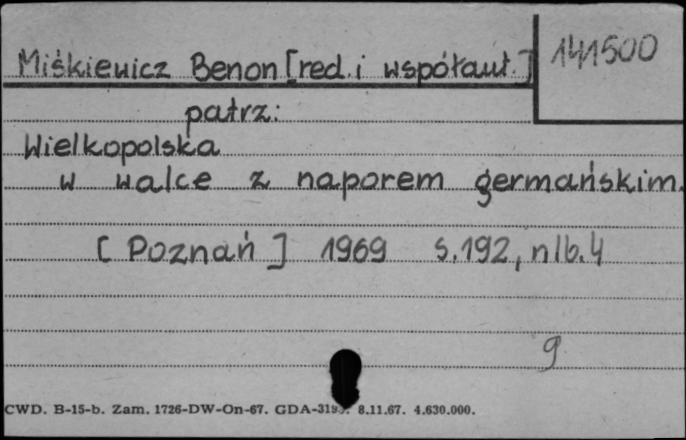 Miśkiewicz Benon [red. i współaut.]
141500
patrz:
Wielkopolska
w walce z naporem germańskim.
[ Poznań ] 1969 s.192, nlb.4
9
CWD. B-15-b. Zam. 1726-DW-On-67. 8.11.67. 4.630.000.